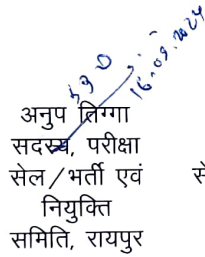 590
16.09.2024
अनुप तिग्गा
सदस्य, परीक्षा
सेल/भर्ती एवं
नियुक्ति
समिति, रायपुर